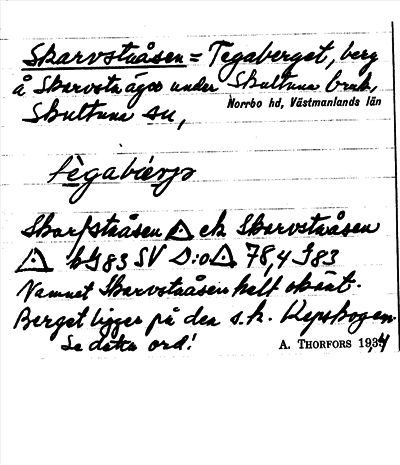 Skarvstaåsen = Tegaberget, berg
å Skarvsta ägor under Skultuna bruk,
Norrbo hd, Västmanlands län
Skultuna sn,
tègabærjs
Skarfstaåsen ek Skarvstaåsen
bG83 SV 78,4 G83
Namnet Skarvstaåsen helt okänt.
Berget ligger på den s.k. Kepskogen.
Se detta ord!
A. THORFORS 1934